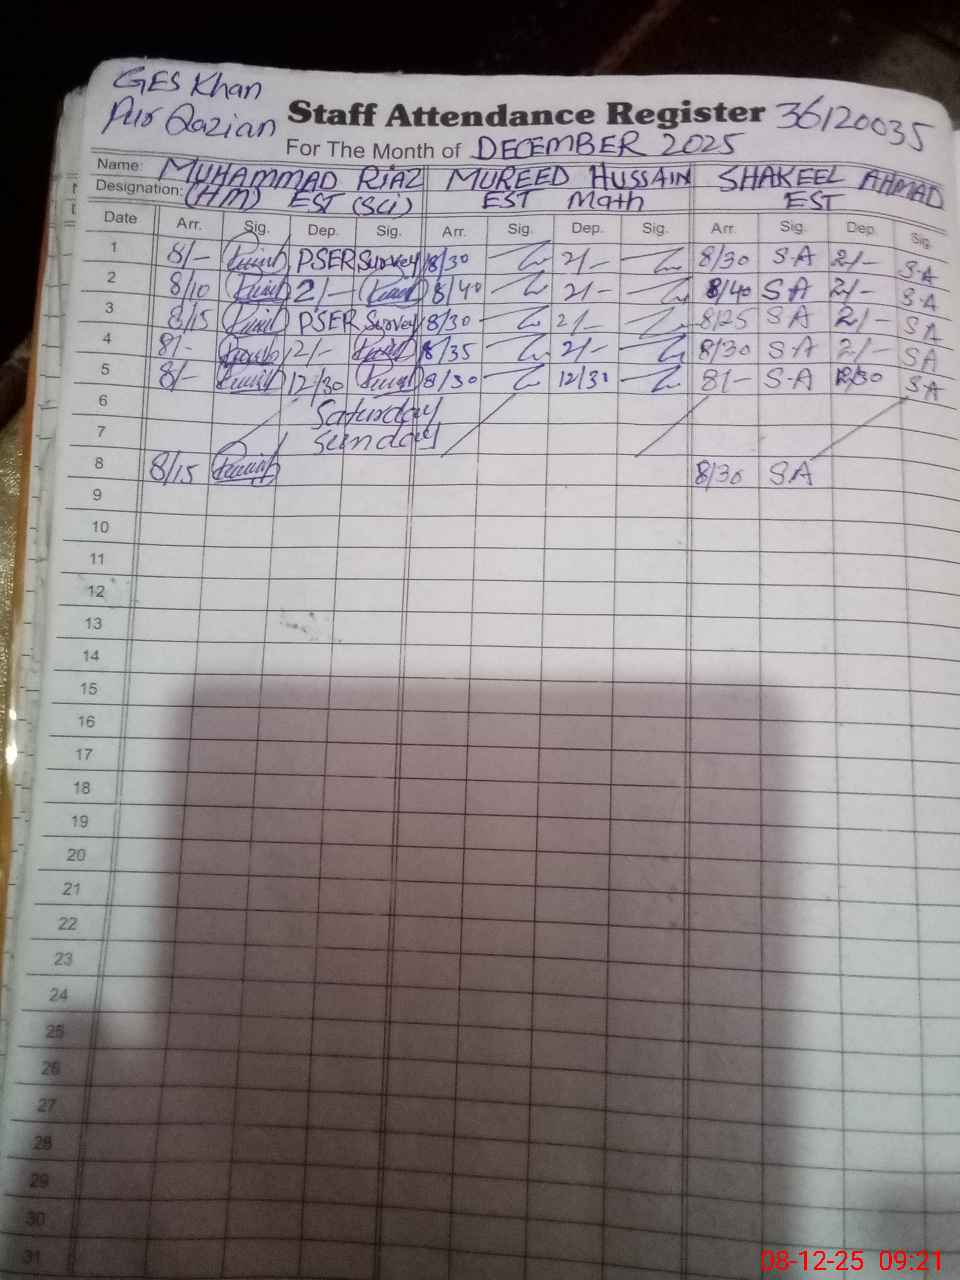 GES Khan
Pur Qazian
Staff Attendance Register 36120035
For The Month of DECEMBER 2025
Name: MUHAMMAD RIAZ MUREED HUSSAIN SHAKEEL AHMAD
Designation: (HM) EST (Sci) EST Math EST
Date Arr. Sig. Dep. Sig. Arr. Sig. Dep. Sig. Arr. Sig. Dep. Sig.
1 8/- PSER Survey 8/30 2/- 8/30 S.A 2/- S.A
2 8/10 2/- 8/40 2/- 8/40 SA 2/- S.A
3 8/15 PSER Survey 8/30 2/- 8/25 SA 2/- SA
4 8/- 2/- 8/35 2/- 8/30 SA 2/- SA
5 8/- 12/30 8/30 12/30 8/- S.A 12/30 S.A
6 Saturday
7 Sunday
8 8/15 8/30 SA
9
10
11
12
13
14
15
16
17
18
19
20
21
22
23
24
25
26
27
28
29
30
31
08-12-25 09:21